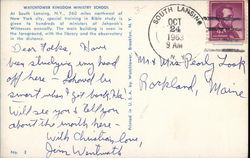 WATCHTOWER KINGDOM MINISTRY SCHOOL
at South Lansing, N.Y., 260 miles northwest of
New York city, special training in Bible study is
given to hundreds of ministers of Jehovah's
Witnesses annually. The main building is seen in
the foreground, with the library and the observatory
in the distance.
Dear Folks, Have
been studying my head
off here - Should be
smart when I get back, Ha!
Will see you & tell you
about the world here -
With Christian love,
Jim Wentworth
No. 2
Printed in U.S.A. by Watchtower, Brooklyn, N.Y.
SOUTH LANSING
OCT
24
9 AM
N.Y.
Mr & Mrs Pearly Look
Rockland, Maine